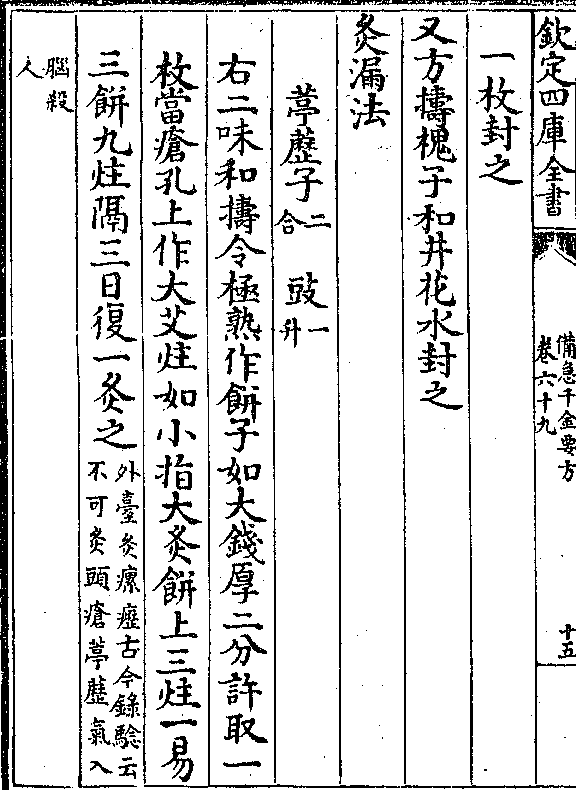 欽定四庫全書
備急千金要方
卷六十九
十五
一枚封之
又方擣槐子和井花水封之
灸漏法
葶藶子二合 豉一升
右二味和擣令極熟作餅子如大錢厚二分許取一
枚當瘡孔上作大艾炷如小指大灸餅上三炷一易
三餅九炷隔三日復一灸之
外臺灸瘰癧古今錄驗云
不可灸頭瘡葶藶氣入
腦殺
人